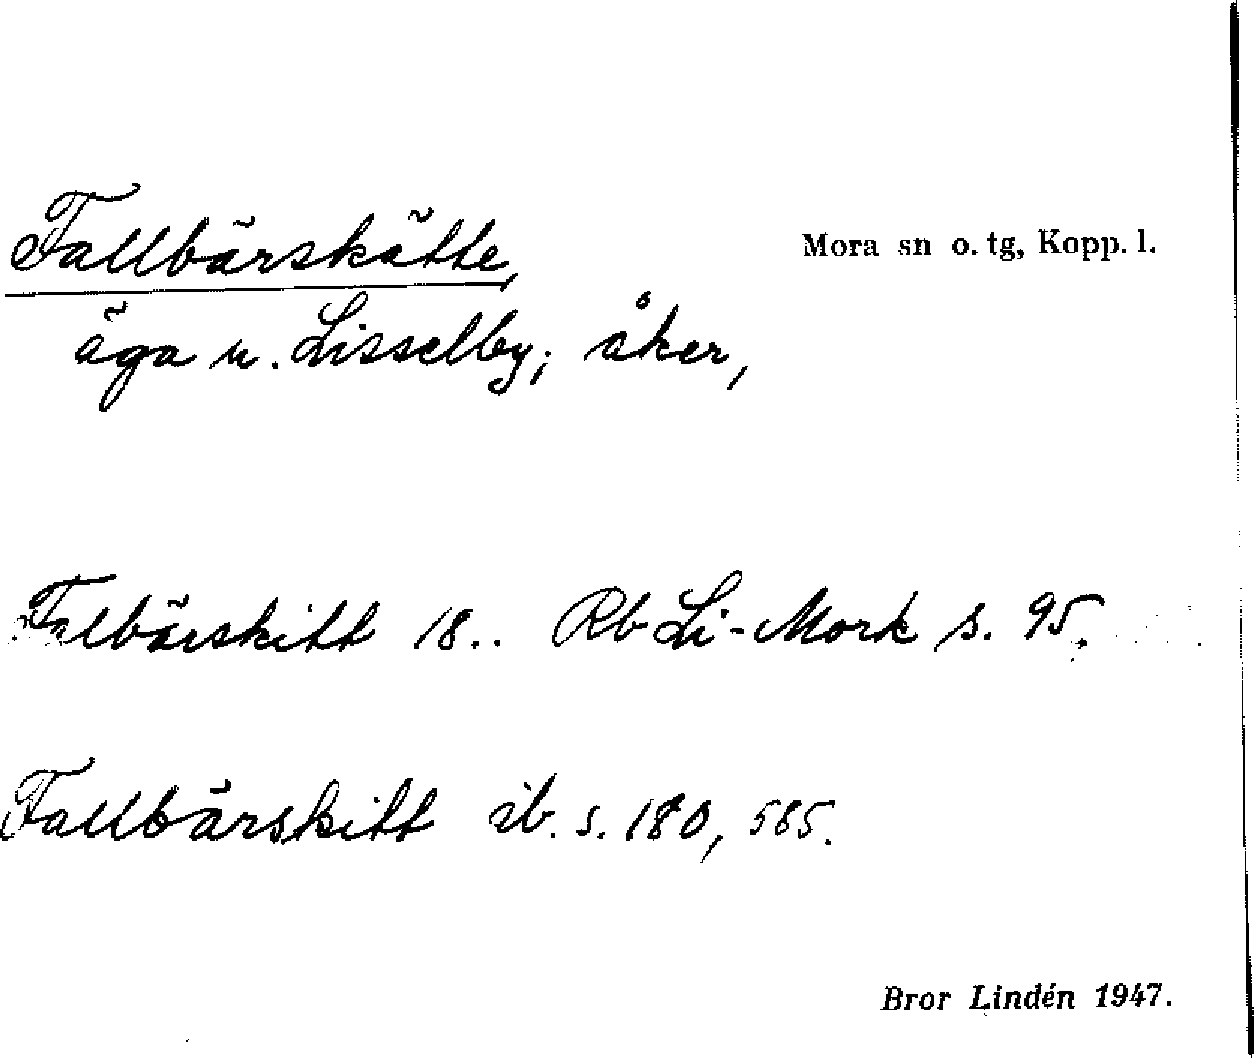 Fallbärskätte,
Mora sn o. tg, Kopp. l.
äga u. Lisselby; åker,
Falbärskitt 18.. Rb Li-Mork s. 95.
Fallbärskitt ib. s. 180, 565.
Bror Lindén 1947.